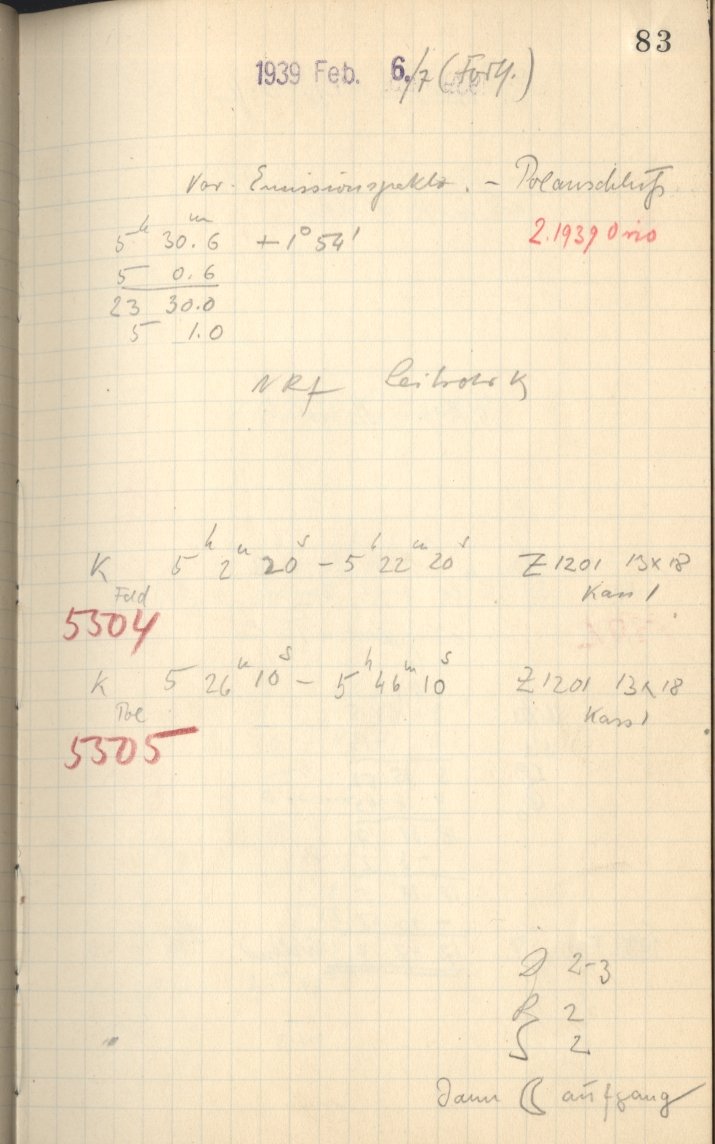 83
1939 Feb. 6./7 (Forts.)
Var. Emissionspektr. - Polanschluß
5h 30.6m +1° 54'
2.1939 Orio
5 0.6
23 30.0
5 1.0
NRf Leitrohr K
K 5h 2m 20s - 5h 22m 20s Z 1201 13x18
Feld Kass 1
5304
K 5 26m 10s - 5h 46m 10s Z 1201 13x18
Pol Kass 1
5305
D 2-3
R 2
S 2
Dann ☾ aufgang